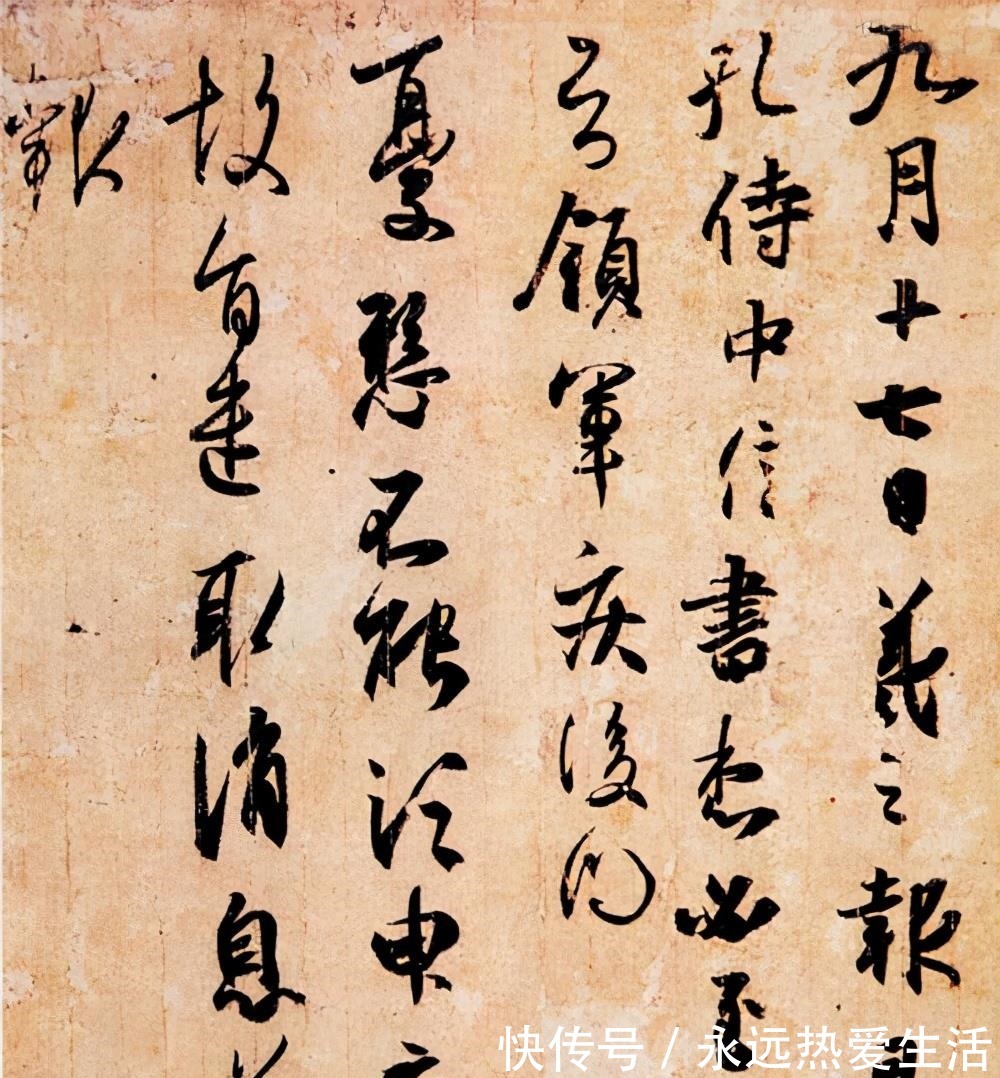 九月十七日羲之報
孔侍中信書想必至
知領軍疾後問
憂懸不能須臾
故旨遣取消息
報
快传号 / 永远热爱生活